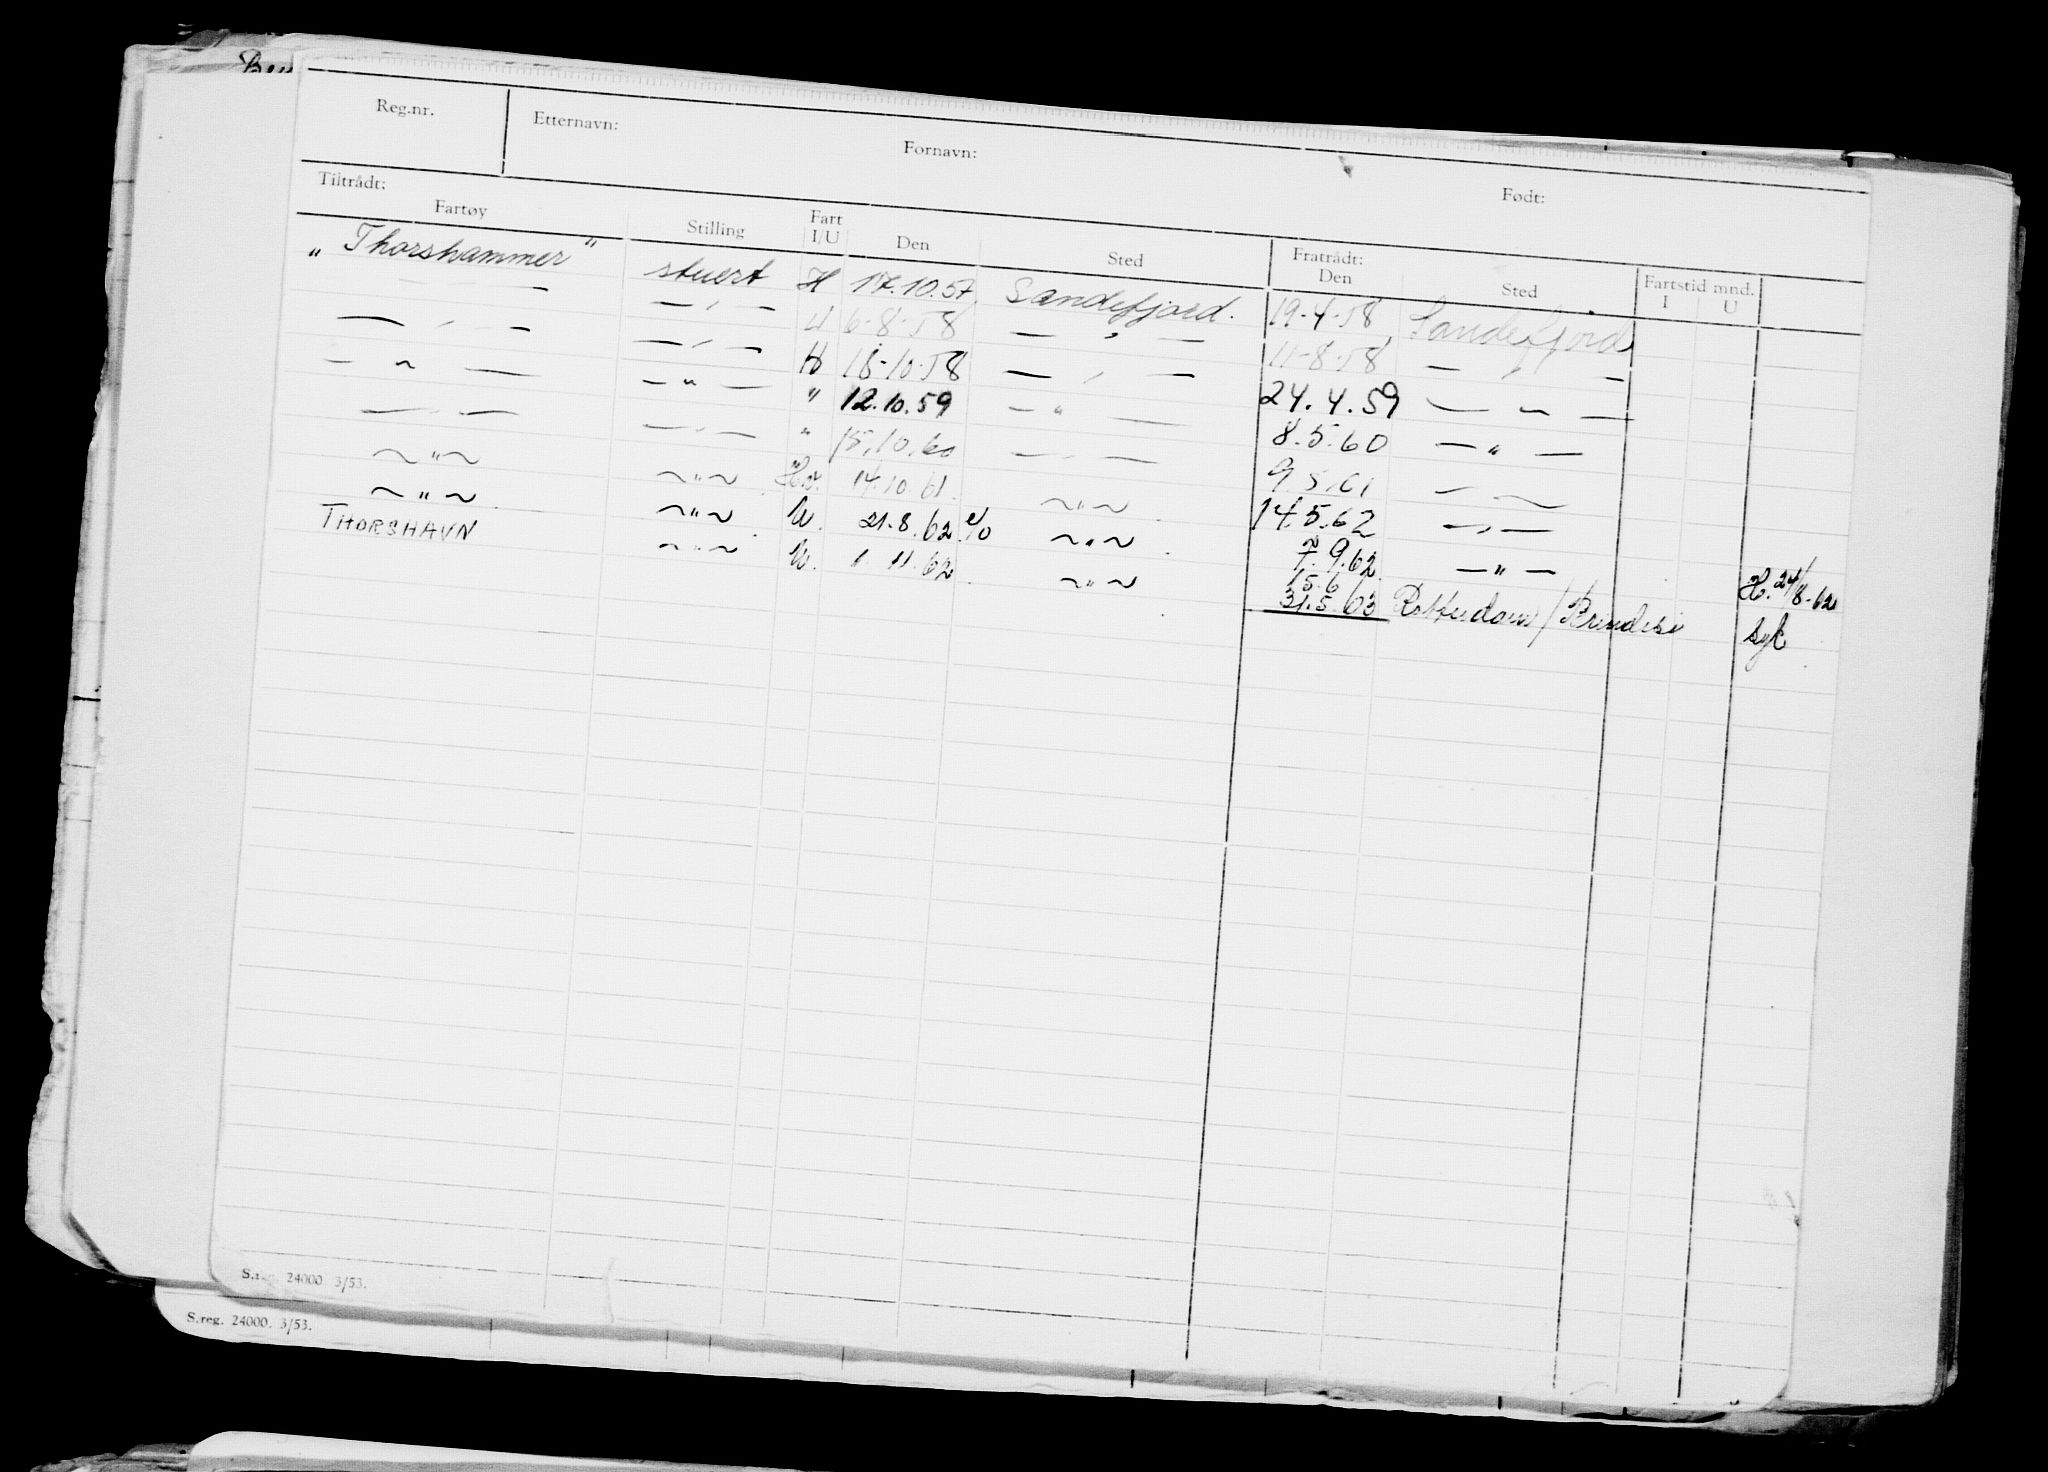 Reg.nr. Etternavn: Fornavn: Født:
Tiltrådt: Fratrådt: Fartstid mnd.
Fartøy Stilling Fart I/U Den Sted Den Sted I U
"Thorshammer" stuert H 17.10.57 Sandefjord. 19-4-58 Sandefjord
— — — " — U 6-8-58 — " — 11-8-58 — " —
— " — — " — H 18-10-58 — " — 24.4.59 — " —
— " — — " — " 12.10.59 — " — 8.5.60 — " —
— " — — " — " 15.10.60 — " — 9.5.61 — " —
~ " ~ ~ " ~ H.f. 14.10.61. ~ " ~ 14.5.62 — " —
~ " ~ ~ " ~ U. 21.8.62 ~ " ~ 7.9.62. — " — H. 24/8-62
THORSHAVN ~ " ~ U. 1.11.62. ~ " ~ 15.6 31.5.63 Rotterdam / Brindisi syk
S.reg. 24000 3/53.
S.reg. 24000. 3/53.